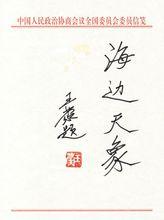 中国人民政治协商会议全国委员会委员信笺
海边天象
王蒙题